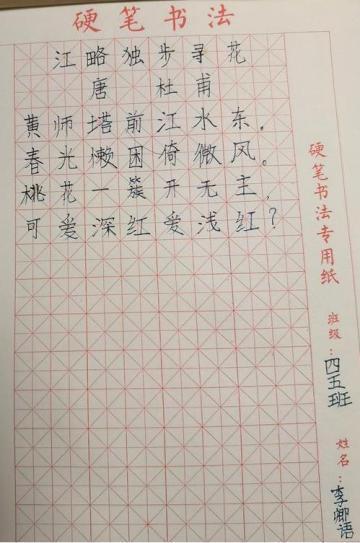 硬笔书法
江略独步寻花
唐 杜甫
黄师塔前江水东，
春光懒困倚微风。
桃花一簇开无主，
可爱深红爱浅红？
硬笔书法专用纸
班级：四五班
姓名：李卿语